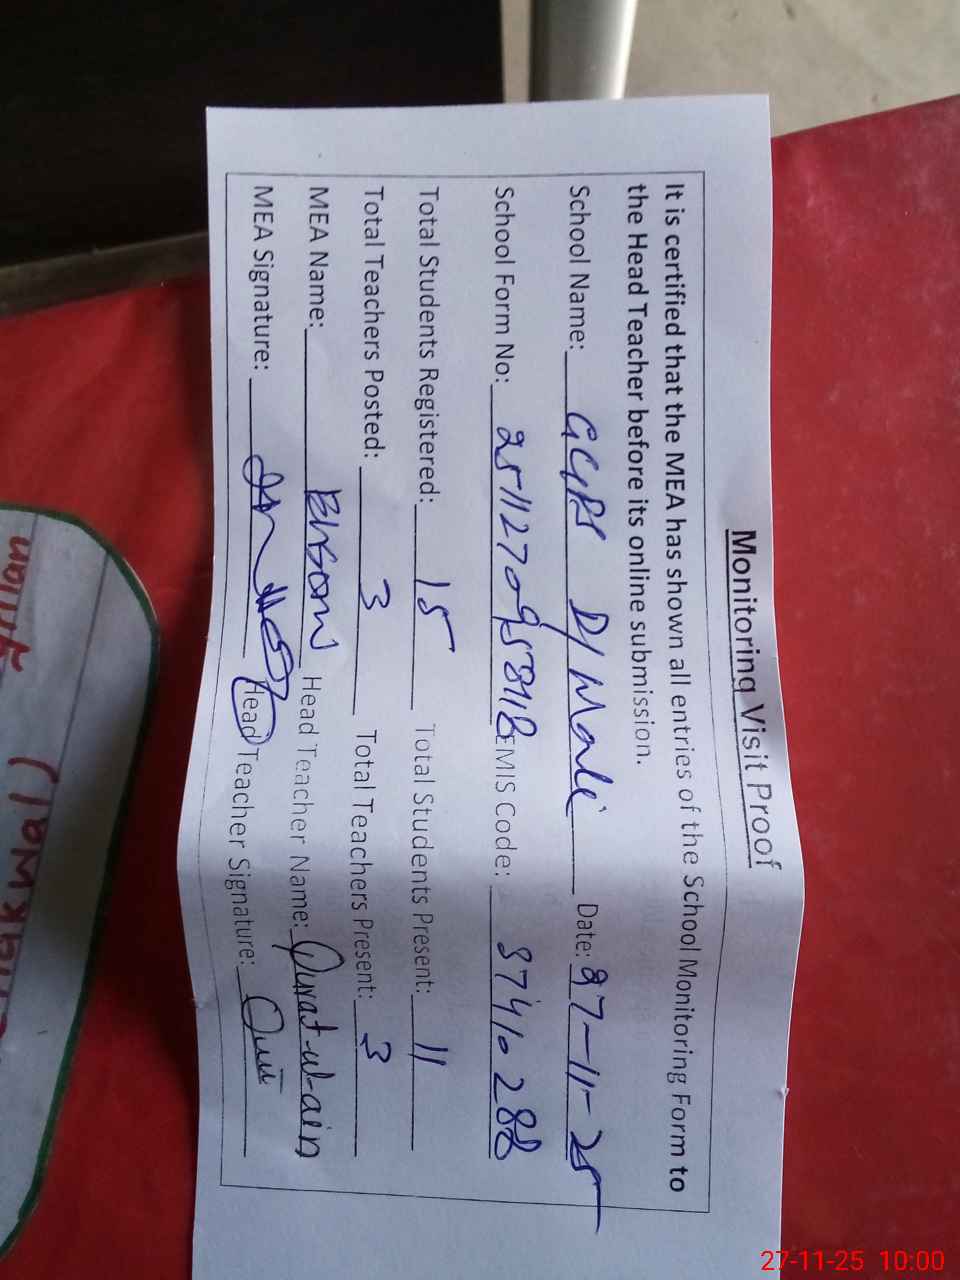 Monitoring Visit Proof
It is certified that the MEA has shown all entries of the School Monitoring Form to
the Head Teacher before its online submission.
School Name: GGPS D/ Wali Date: 27-11-25
School Form No: EMIS Code: 37410288
Total Students Registered: 15 Total Students Present: 11
Total Teachers Posted: 3 Total Teachers Present: 3
MEA Name: Head Teacher Name: Qurat-ul-ain
MEA Signature: Head Teacher Signature:
27-11-25 10:00